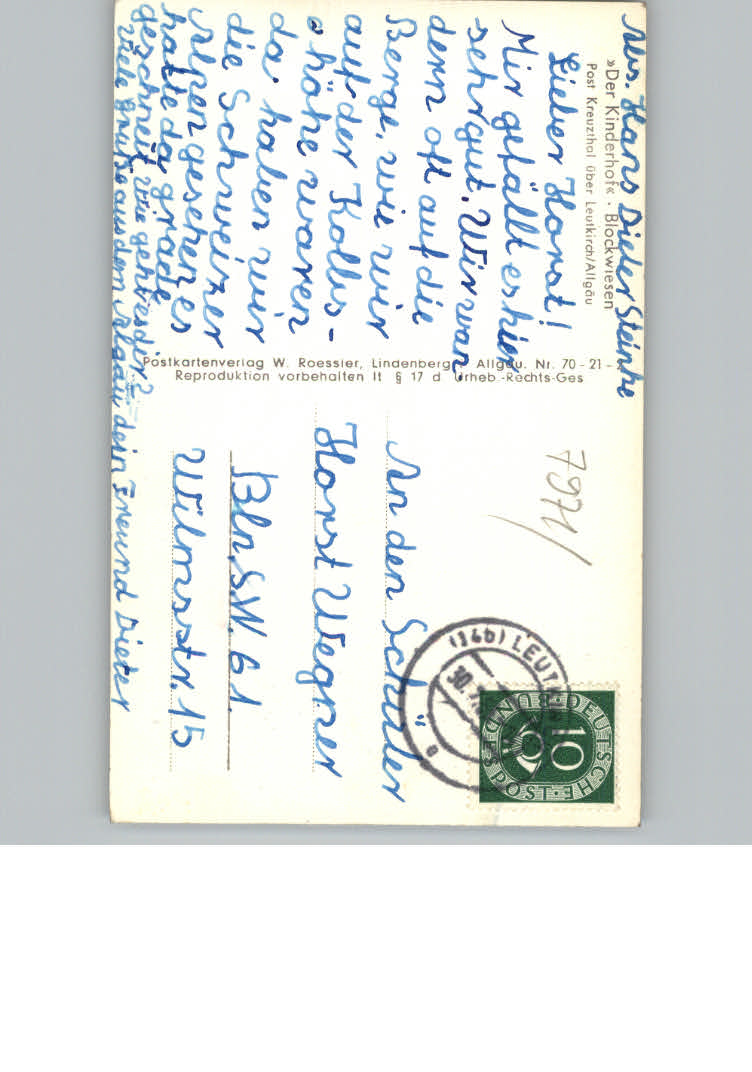 Abs. Hans Dieter Steinke
»Der Kinderhof« · Blockwiesen
Post Kreuzthal über Leutkirch/Allgäu
Lieber Horst!
Mir gefällt es hier
sehr gut. Wir war
denn oft auf die
Berge, wie wir
auf der Kolbs-
höhe waren
da haben wir
die Schweizer
Alpen gesehen es
hatte da grade
geschneit wie geht es dir?
Viele Grüße aus dem Algäu dein Freund Dieter
Postkartenverlag W. Roessler, Lindenberg Allgäu. Nr. 70-21-
Reproduktion vorbehalten lt § 17 d Urheb.-Rechts-Ges
7971/
An den Schüler
Horst Wegner
Bln. S.W. 61.
Wilmsstr. 15
(14b) LEUTKIRCH
30.
a
DEUTSCHE BUNDESPOST
10